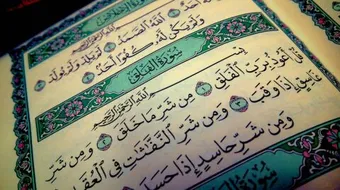 ٱللَّهُ ٱلصَّمَدُ ٢ لَمْ يَلِدْ وَلَمْ يُولَدْ
وَلَمْ يَكُن لَّهُۥ كُفُوًا أَحَدٌ
سُورَةُ الفَلَقِ
بِسْمِ ٱللَّهِ ٱلرَّحْمَٰنِ ٱلرَّحِيمِ
قُلْ أَعُوذُ بِرَبِّ ٱلْفَلَقِ ١ مِن شَرِّ مَا خَلَقَ ٢ وَمِن شَرِّ
غَاسِقٍ إِذَا وَقَبَ ٣ وَمِن شَرِّ ٱلنَّفَّٰثَٰتِ فِى ٱلْعُقَدِ
وَمِن شَرِّ حَاسِدٍ إِذَا حَسَدَ
سُورَةُ